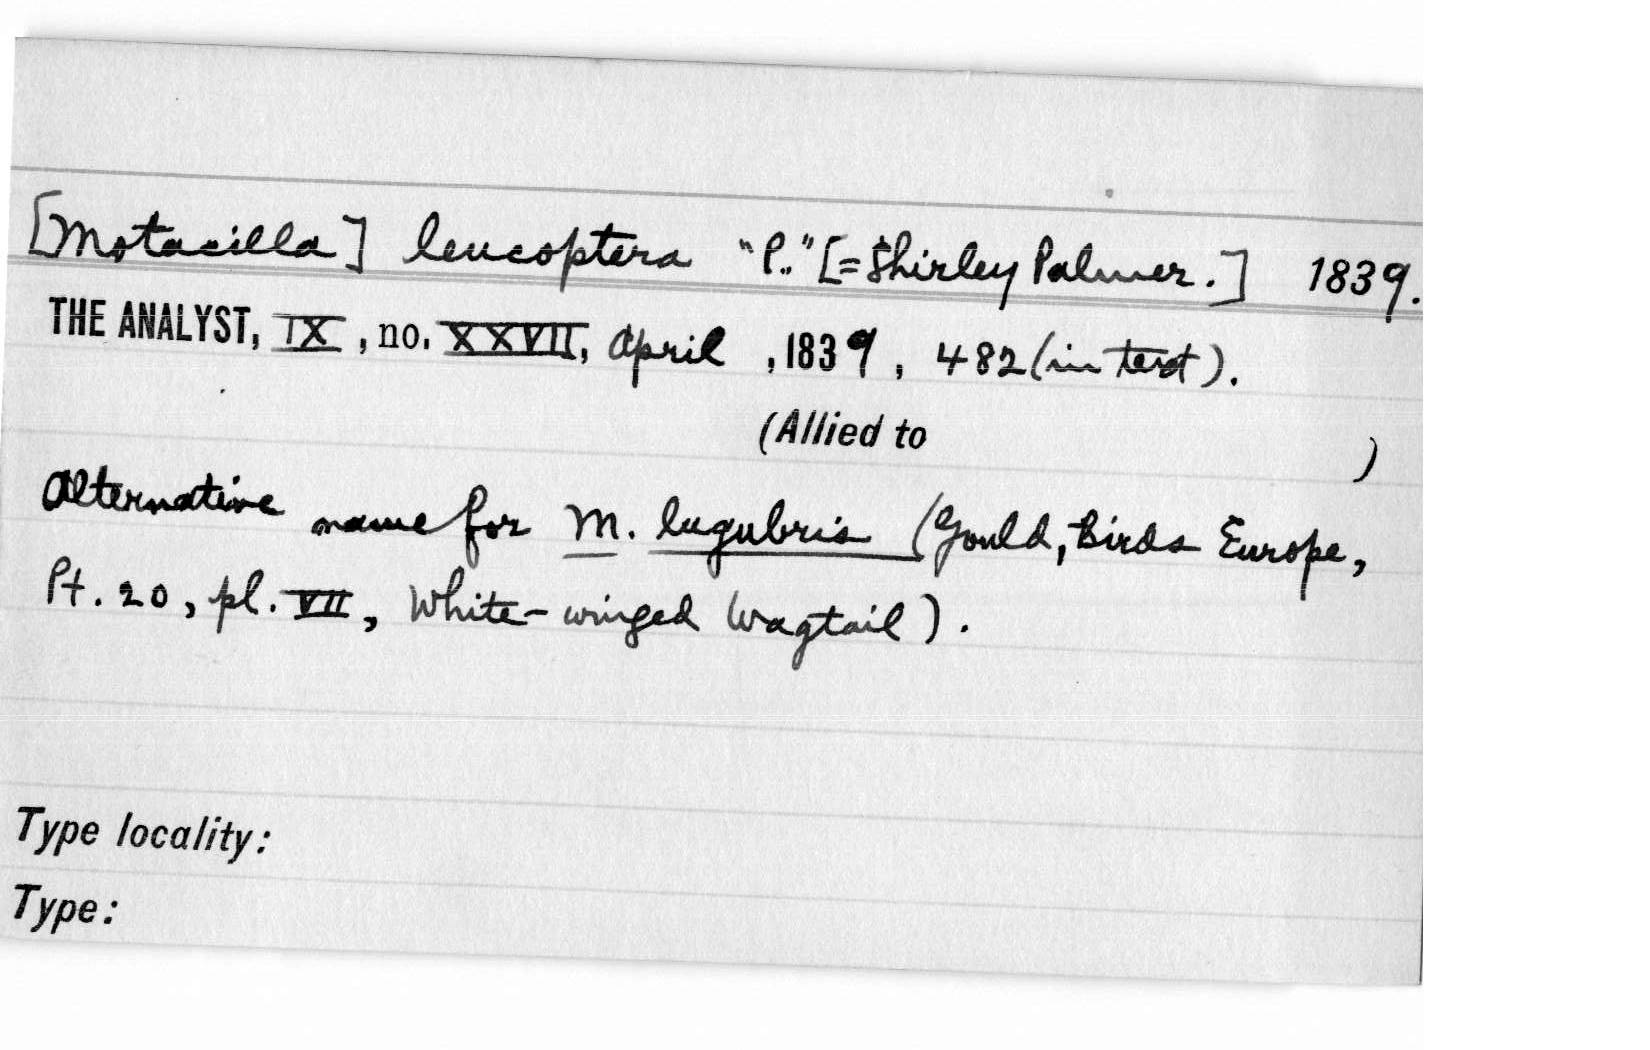 [Motacilla] leucoptera "P." [=Shirley Palmer.] 1839.
THE ANALYST, IX, no. XXVII, April, 1839, 482 (in text).
(Allied to )
Alternative name for M. lugubris (Gould, Birds Europe,
Pt. 20, pl. VII, White-winged Wagtail).
Type locality:
Type: